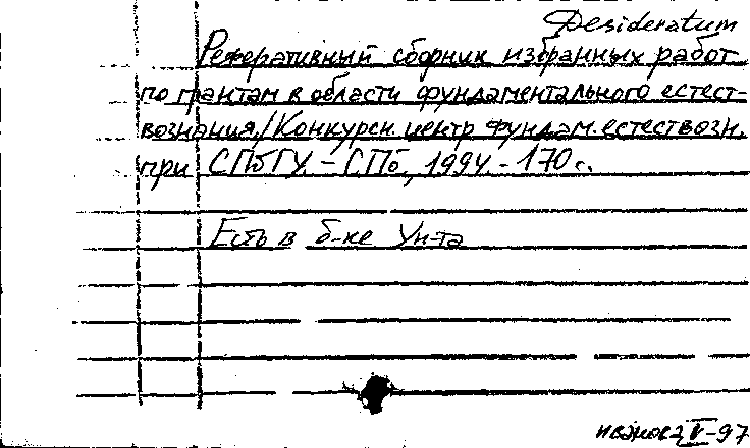 Desideratum
Реферативный сборник избранных работ
по грантам в области фундаментального естест-
вознания./Конкурсн. центр фундам. естествозн.
при СПбГУ. – СПб., 1994. – 170 с.
Есть в б-ке Ун-та
2 V-97